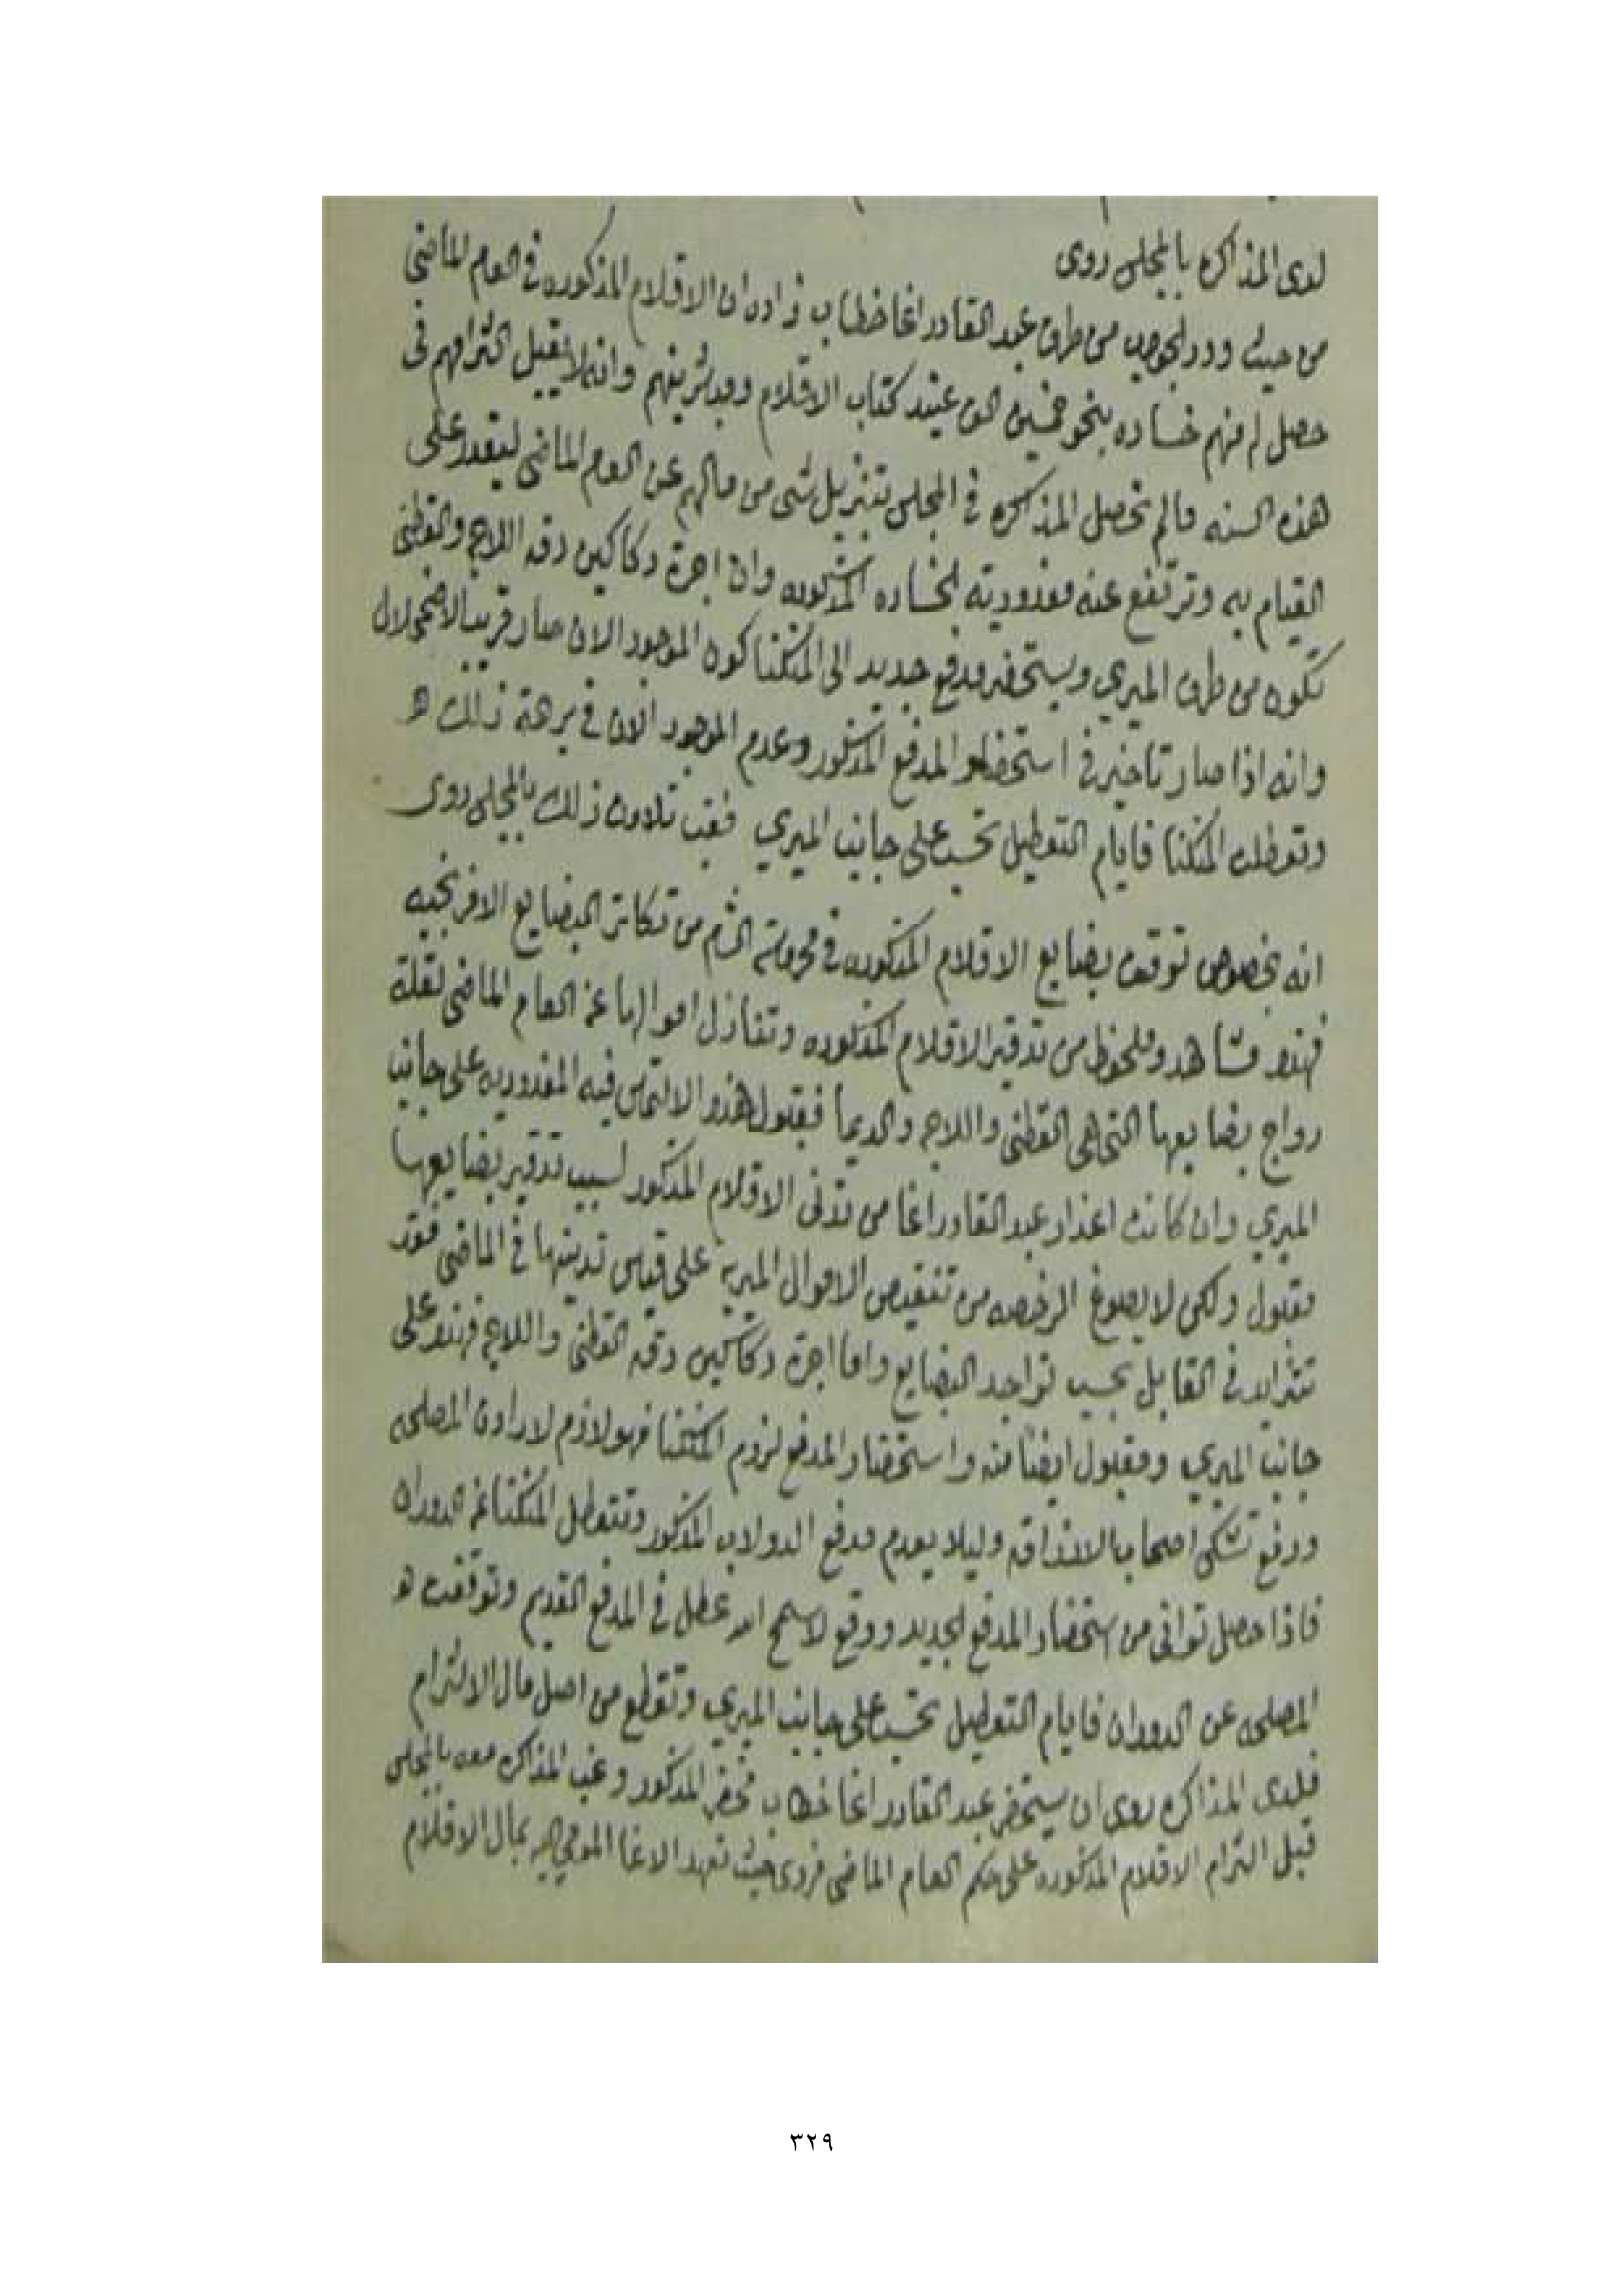 لدى المذاكره بالمجلس روى
من حيث ورد الجواب من طرف عبد القادر اغا خطاب افاده ان الاقلام المذكوره في العام الماضي
حصل له منهم خساره بنحو خمسين الف عند كتاب الاقلام وبدئرينهم وانه لا يقبل التزامهم في
هذه السنه مالم تحصل المذاكره في المجلس بتنزيل شي من مالهم عن العام الماضي ليقدر على
القيام به وترتفع عنه مغدوريته الخساره المذكوره وان اجرة دكاكين دقه اللاجه والقطني
تكون من طرف الميري ويستحضر مدفع جديد الى المنكنا كون الموجود الان صار قريب الاضمحلال
وانه اذا صار تاخير في استحضار المدفع المذكور وعدم الموجود الان في برهة ذلك
وتعطلت المنكنا فايام التعطيل تحسب على جانب الميري فغب تلاوة ذلك بالمجلس روى
انه بخصوص توقف بضايع الاقلام المذكوره في محروسة الشام من تكاثر البضايع الافرنجيه
فهذا مشاهد وملحوظ من تدقير الاقلام المذكوره وتنازل اموالها عن العام الماضي لقلة
رواج بضايعها التي هي القطني واللاجه والديما فقبول هذا الالتماس فيه المغدوريه على جانب
الميري وان كانت اعذار عبد القادر اغا من تدني الاقلام المذكور لسبب تدقير بضايعها
مقبول ولكن لا يصوغ الرخصه من تنقيص الاموال الميريه على قياس تدينها في الماضي فقد
تتزايد في القابل بحسب تواجد البضايع واما اجرة دكاكين دقه القطني واللاجه فهذه على
جانب الميري ومقبول ايضا منه واستحضار المدفع لزوم المنكنا فهو لازم لادارة المصلحه
ورفع تشكي اصحاب الارزاقه وليلا يعدم مدفع الدولاب المذكور وتتعطل المنكنا عن الدوران
فاذا حصل تواني من استحضار المدفع الجديد ووقع لا سمح الله عطل في المدفع القديم وتوقفت
المصلحه عن الدوران فايام التعطيل تحسب على جانب الميري وتقطع من اصل مال الالتزام
فلدى المذاكره روى ان يستحضر عبد القادر اغا خطاب فحضر المذكور وغب المذاكره معه بالمجلس
قبل التزام الاقلام المذكوره على حكم العام الماضي فروى حيث تعهد الاغا المومى اليه بمال الاقلام
٣٢٩